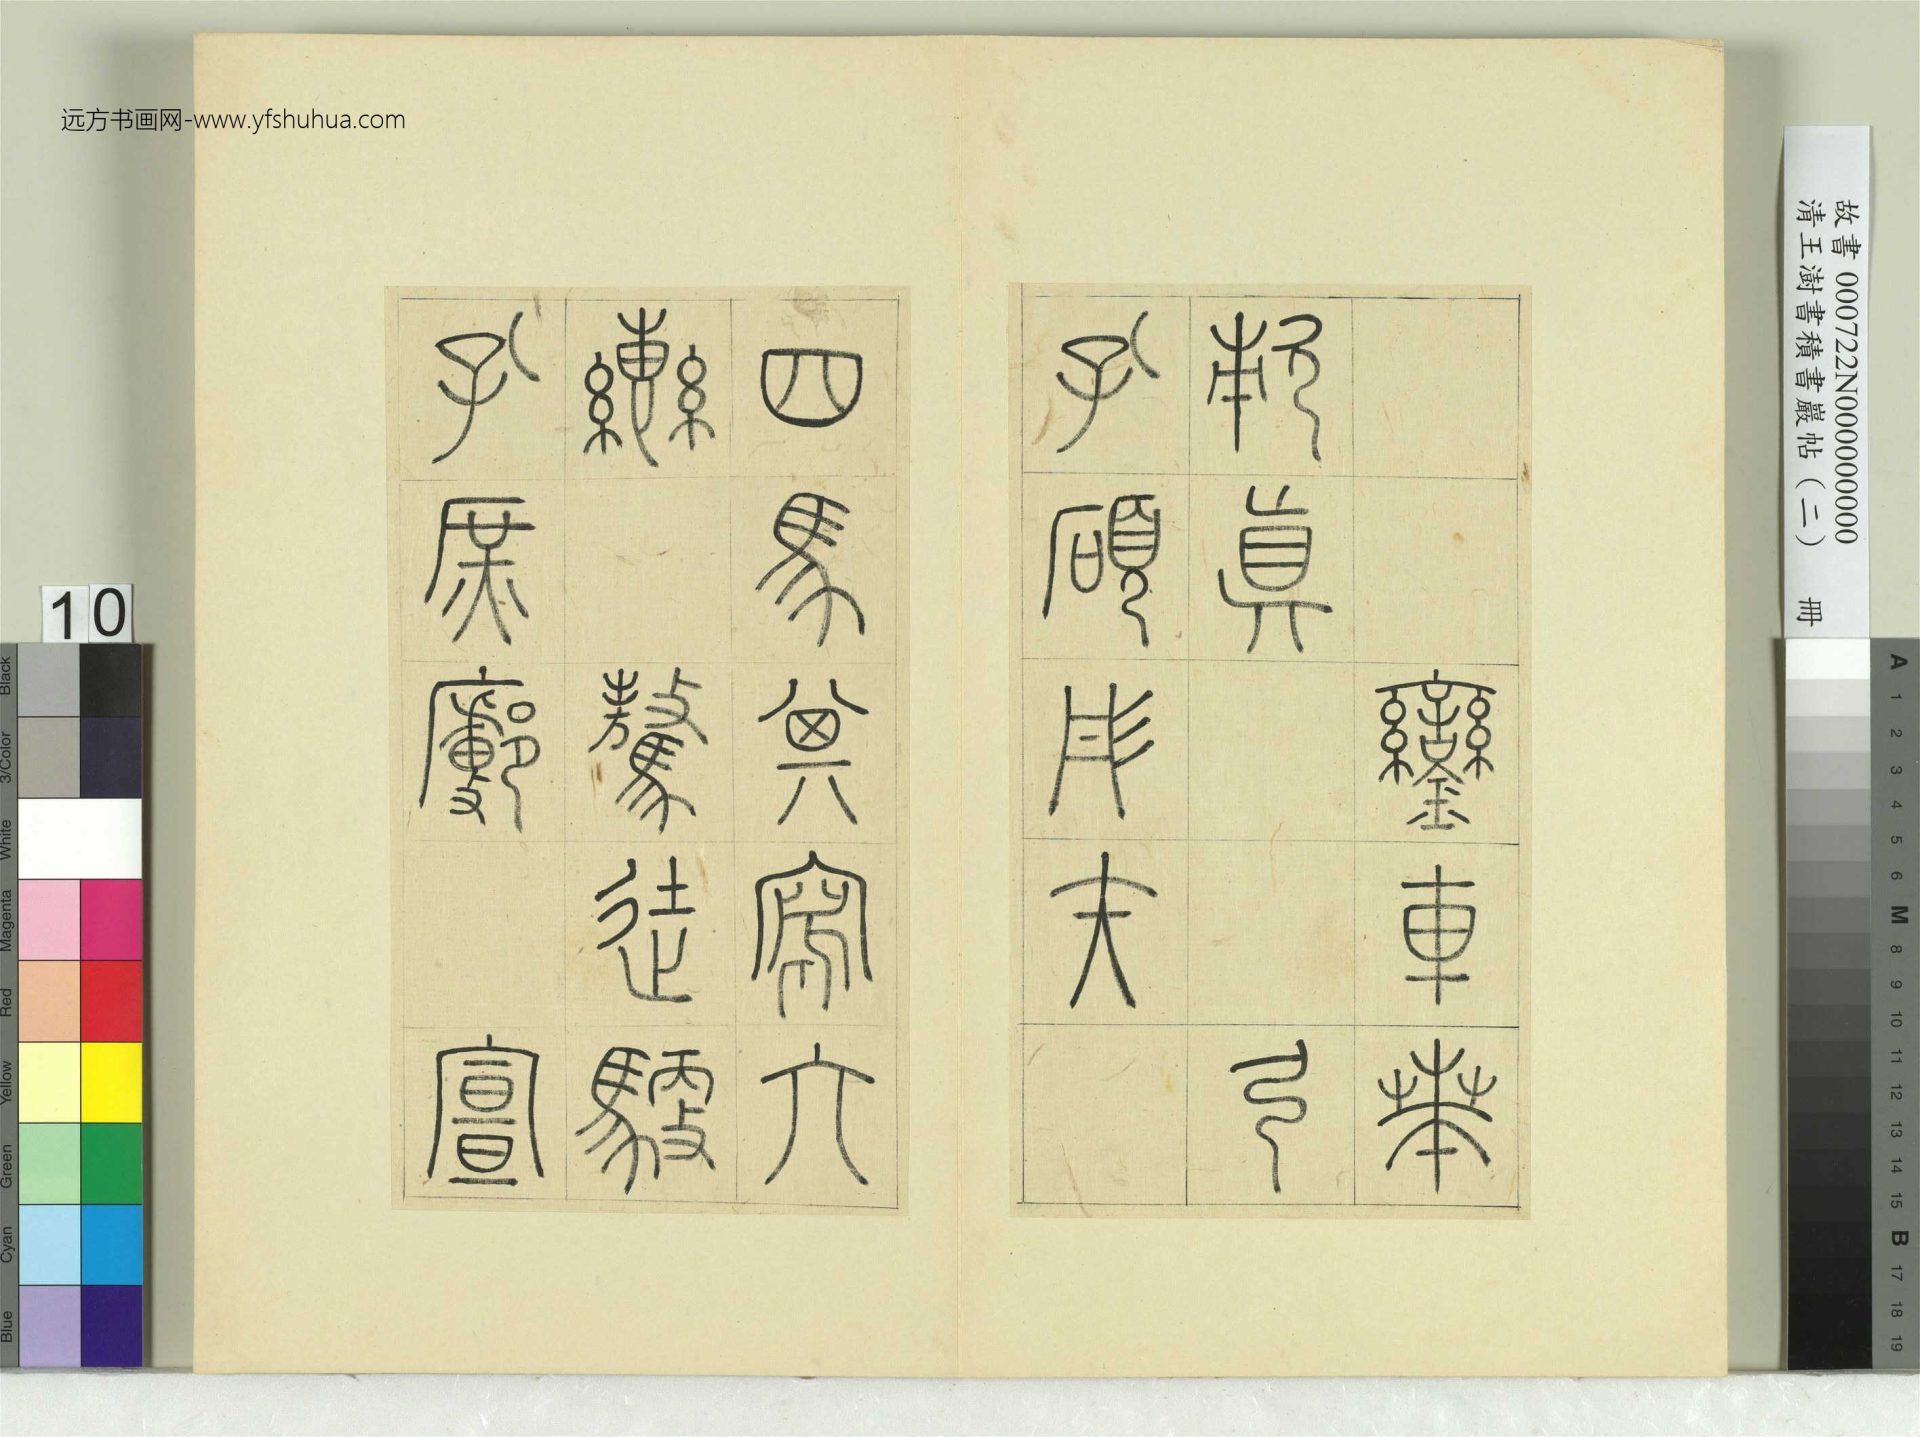 远方书画网-www.yfshuhua.com
故書 000722N000000000
清王澍書積書巖帖（二） 冊
鑾車
真弓
孔碩彤矢
四馬其寫六
轡驁徒馭
孔庶宣
10
Black
3/Color
White
Magenta
Red
Yellow
Green
Cyan
Blue
A 1 2 3 4 5 6 M 8 9 10 11 12 13 14 15 B 17 18 19